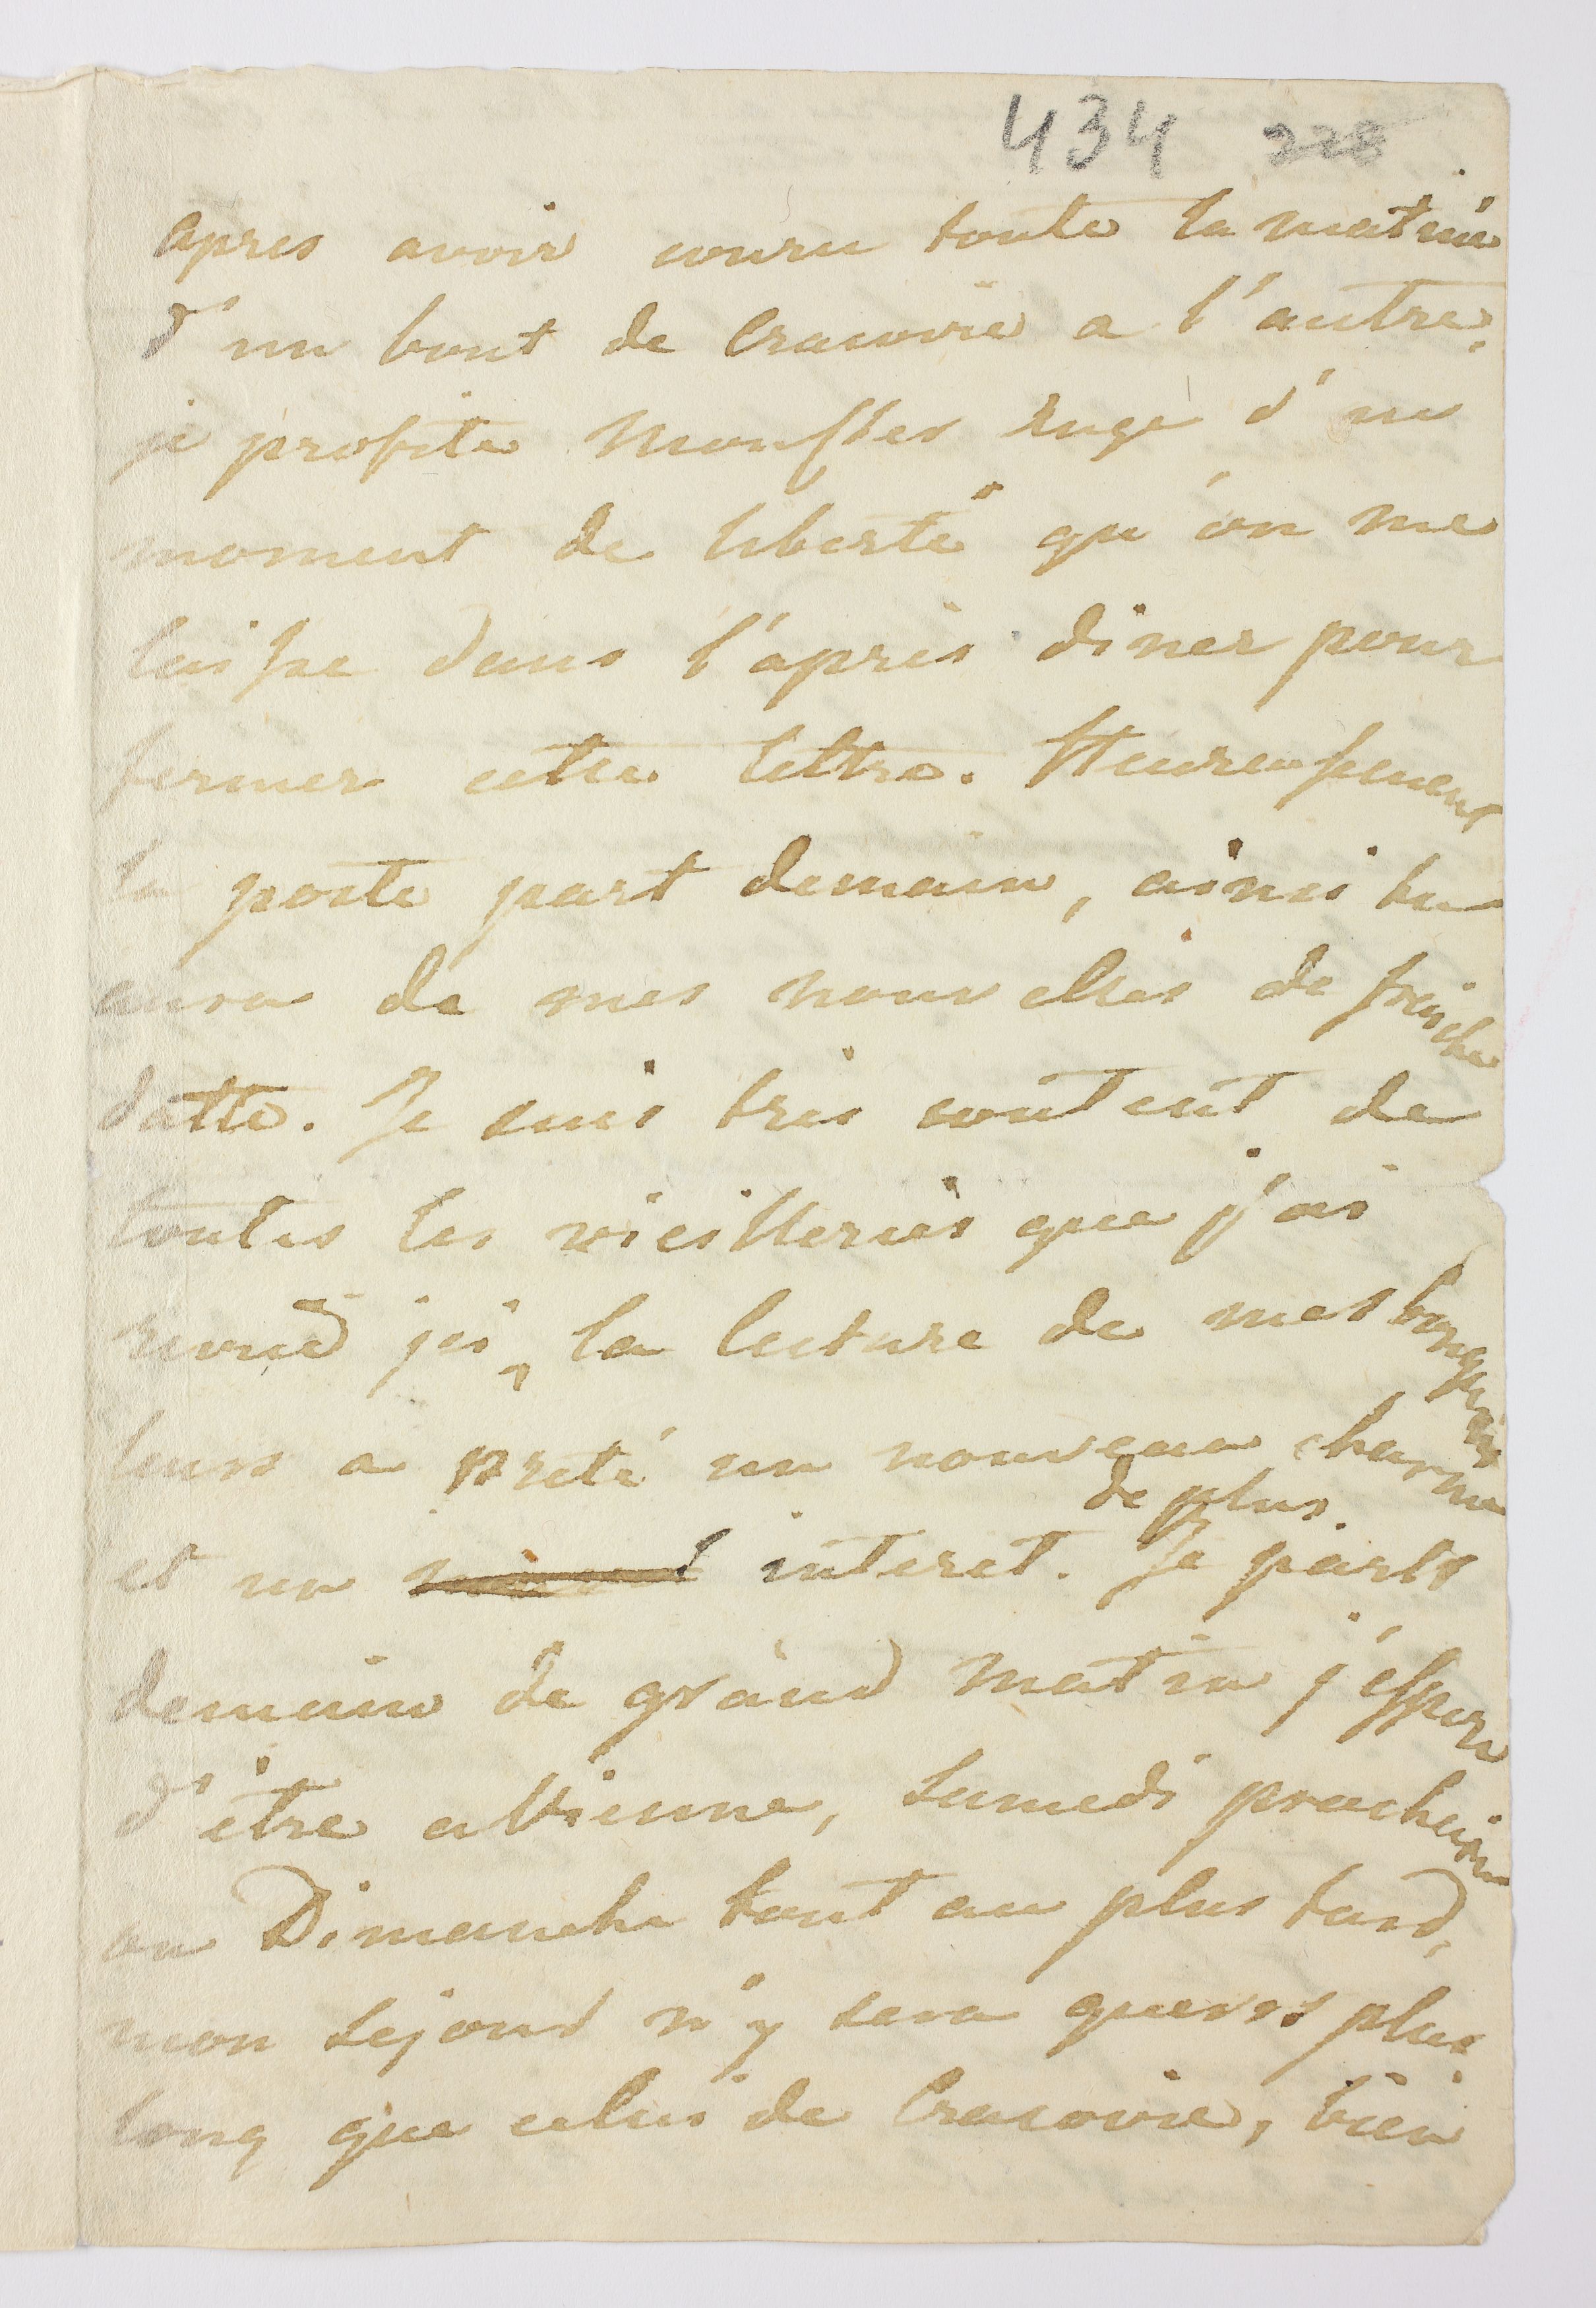 434 228
apres avoir couru toute la matinée
d'un bout de Cracovie a l'autre,
je profite d'un
moment de liberté qu'on me
laisse dans l'après diner pour
fermer cette lettre. Heureusement
la poste part demain, ainsi tu
aura de mes nouvelles de fraiche
datte. Je suis très content de
toutes les vieilleries que j'ai
la lecture de mes
leurs a preté un nouveau charme
de plus
et un interet. Je parts
demain de grand matin j'espere
d'être a Vienne, Samedi prochain
ou Dimanche tout au plus tard,
mon sejour n'y sera gueres plus
long que celui de Cracovie, bien